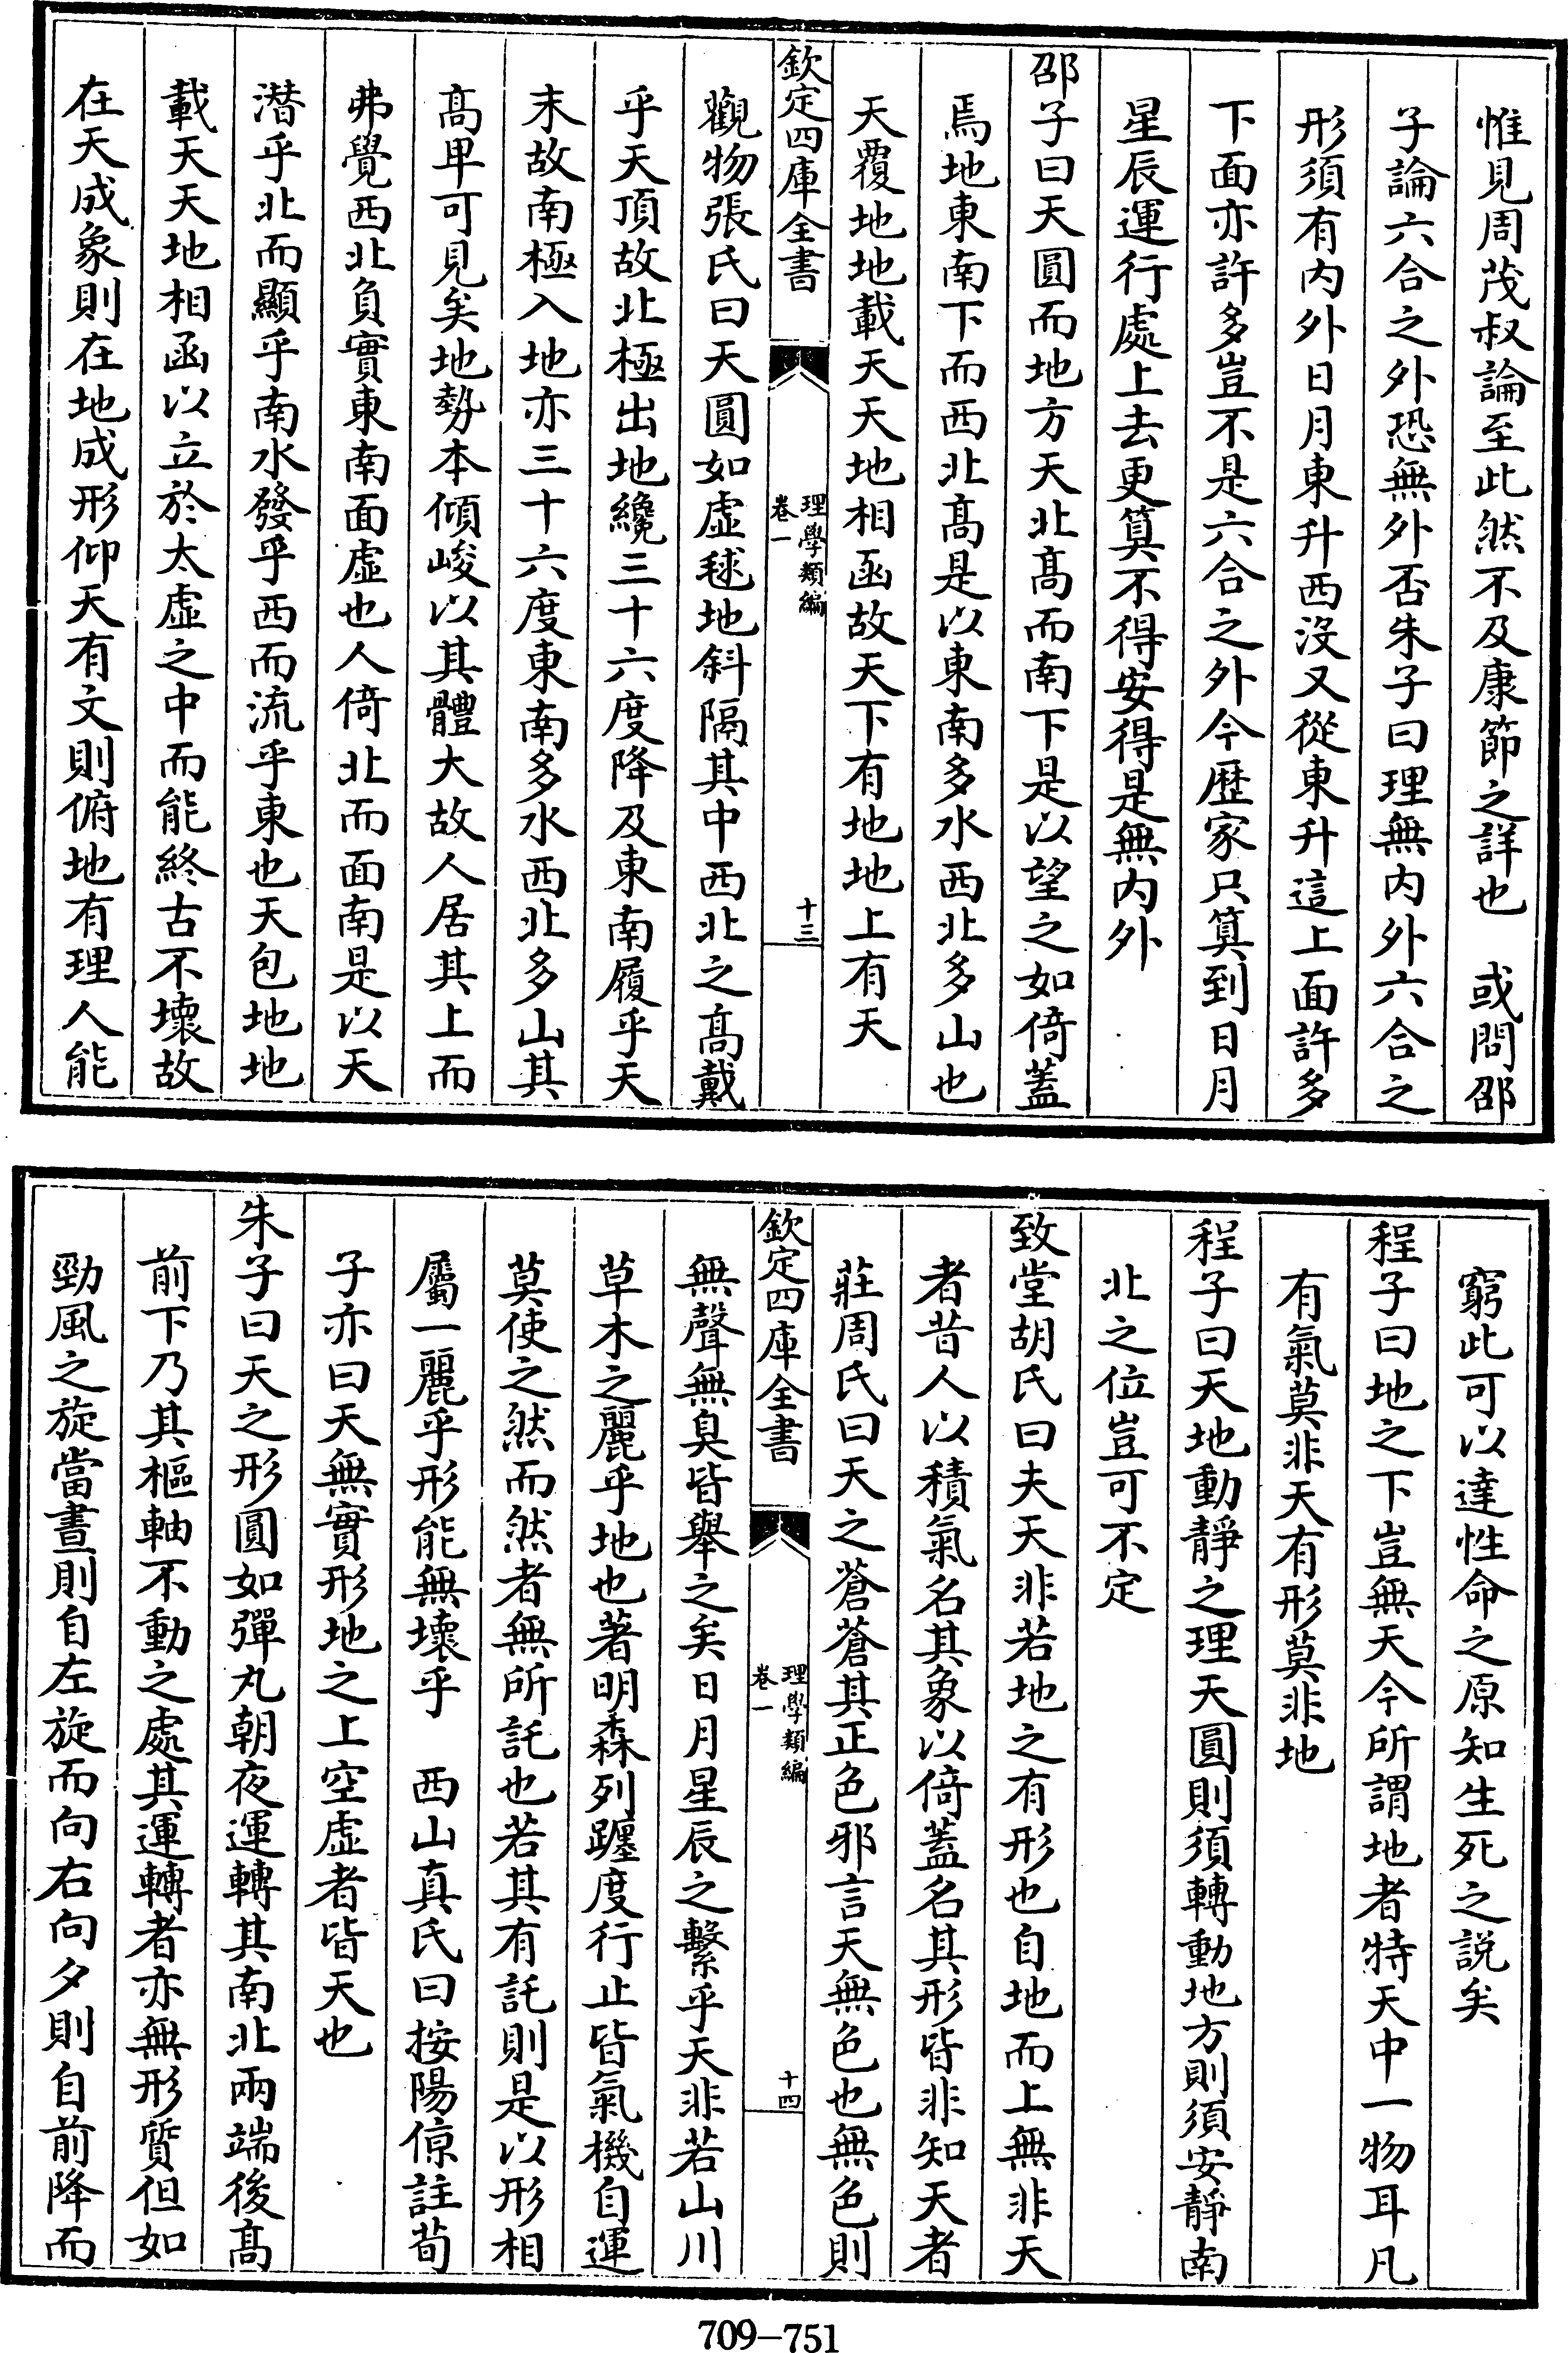 惟見周茂叔論至此然不及康節之詳也　或問邵
子論六合之外恐無外否朱子曰理無内外六合之
形須有内外日月東升西沒又從東升這上面許多
下面亦許多豈不是六合之外今歷家只算到日月
星辰運行處上去更算不得安得是無内外
邵子曰天圓而地方天北髙而南下是以望之如倚蓋
焉地東南下而西北髙是以東南多水西北多山也
天覆地地載天天地相函故天下有地地上有天
欽定四庫全書
理學類編
卷一
十三
觀物張氏曰天圓如虛毬地斜隔其中西北之髙戴
乎天頂故北極出地纔三十六度降及東南履乎天
末故南極入地亦三十六度東南多水西北多山其
髙卑可見矣地勢本傾峻以其體大故人居其上而
弗覺西北負實東南面虛也人倚北而面南是以天
潛乎北而顯乎南水發乎西而流乎東也天包地地
載天天地相函以立於太虛之中而能終古不壞故
在天成象則在地成形仰天有文則俯地有理人能
窮此可以達性命之原知生死之說矣
程子曰地之下豈無天今所謂地者特天中一物耳凡
有氣莫非天有形莫非地
程子曰天地動靜之理天圓則須轉動地方則須安靜南
北之位豈可不定
致堂胡氏曰夫天非若地之有形也自地而上無非天
者昔人以積氣名其象以倚蓋名其形皆非知天者
莊周氏曰天之蒼蒼其正色邪言天無色也無色則
欽定四庫全書
理學類編
卷一
十四
無聲無臭皆舉之矣日月星辰之繫乎天非若山川
草木之麗乎地也著明森列躔度行止皆氣機自運
莫使之然而然者無所託也若其有託則是以形相
屬一麗乎形能無壞乎　西山真氏曰按陽倞註荀
子亦曰天無實形地之上空虛者皆天也
朱子曰天之形圓如彈丸朝夜運轉其南北兩端後髙
前下乃其樞軸不動之處其運轉者亦無形質但如
勁風之旋當晝則自左旋而向右向夕則自前降而
709-751